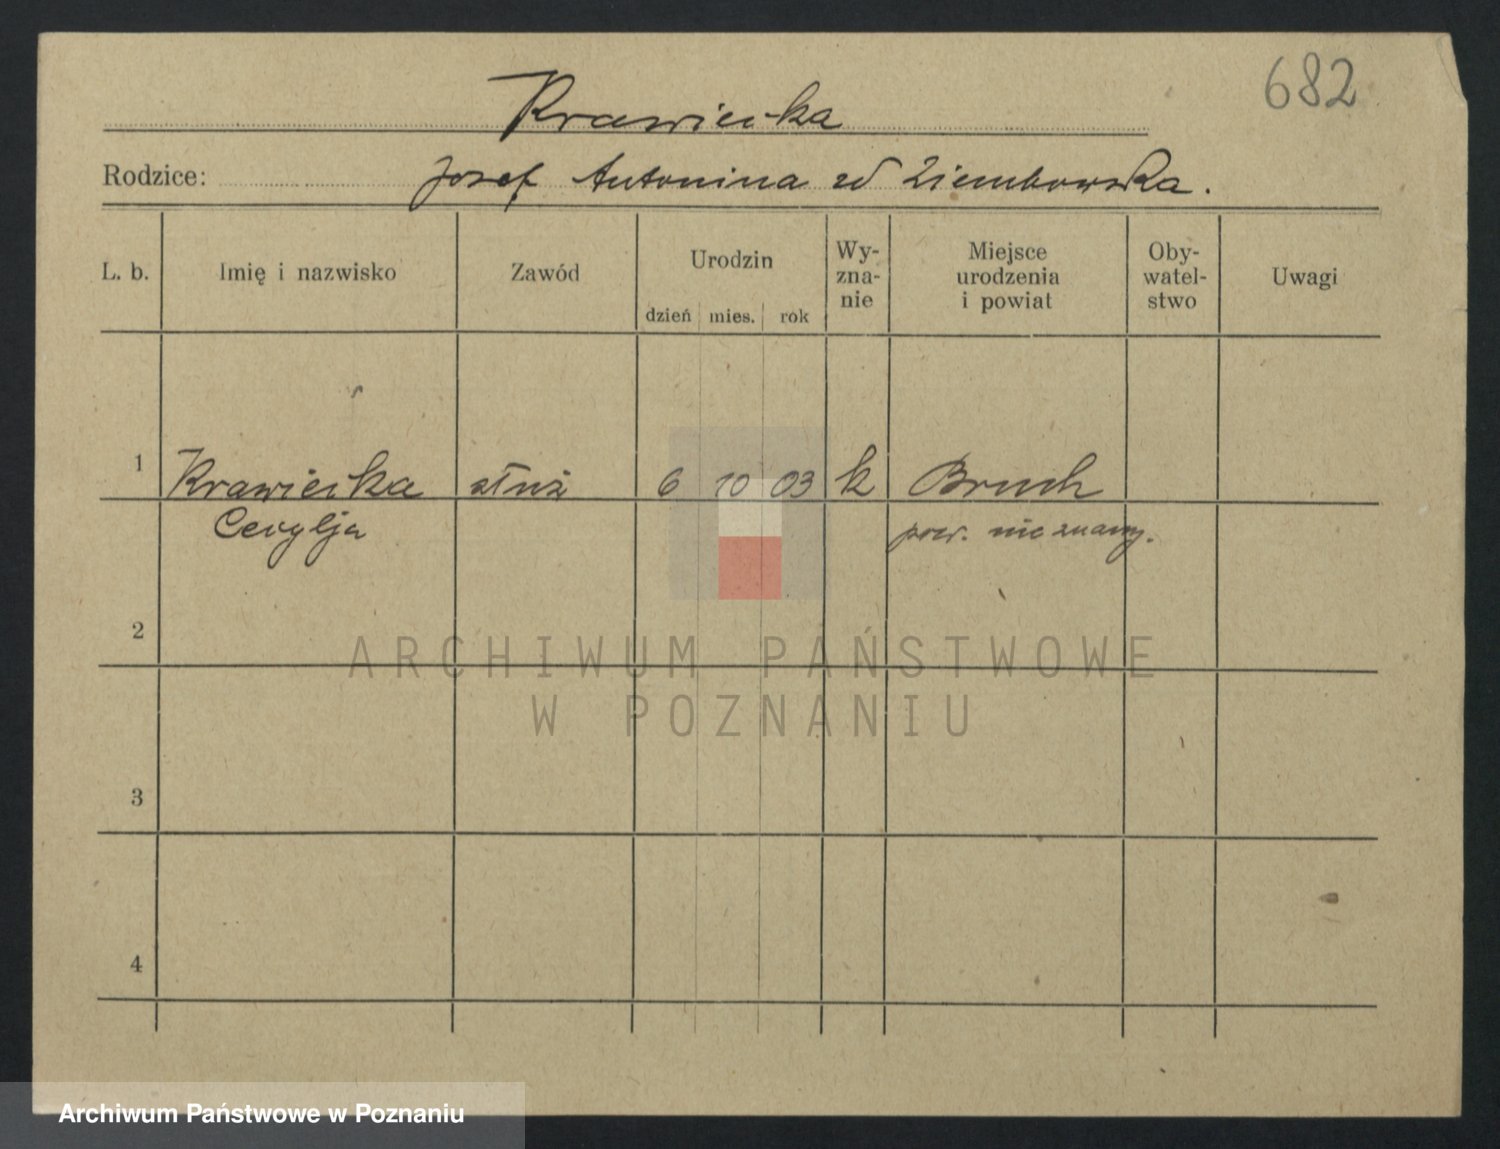 682
Krawiecka
Rodzice: Josef Antonina zd Ziembowska.
L. b. Imię i nazwisko Zawód Urodzin dzień mies. rok Wy-zna-nie Miejsce urodzenia i powiat Oby-watel-stwo Uwagi
1 Krawiecka służ 6 10 03 k Bruch
Cecylja pow. nieznany.
2
3
4
ARCHIWUM PAŃSTWOWE
W POZNANIU
Archiwum Państwowe w Poznaniu